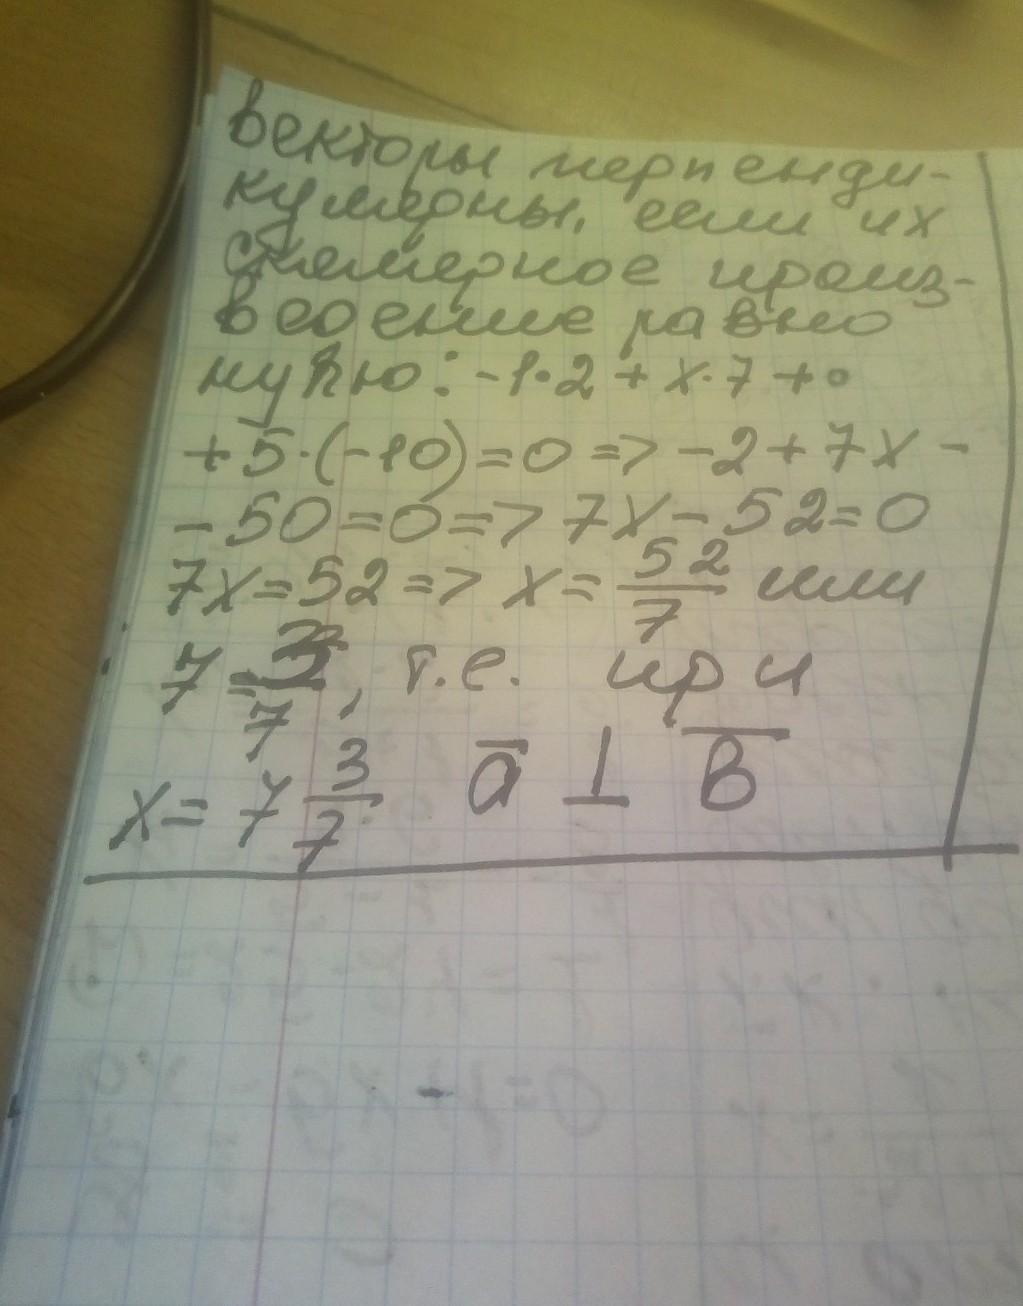 векторы перпенди-
кулярны, если их
скалярное произ-
ведение равно
нулю: -1·2 + x·7 +
+5·(-10)=0 => -2+7x-
-50=0=> 7x-52=0
7x=52 => x= 52/7 или
7 3/7, т.е. при
x= 7 3/7 a̅ ⊥ b̅